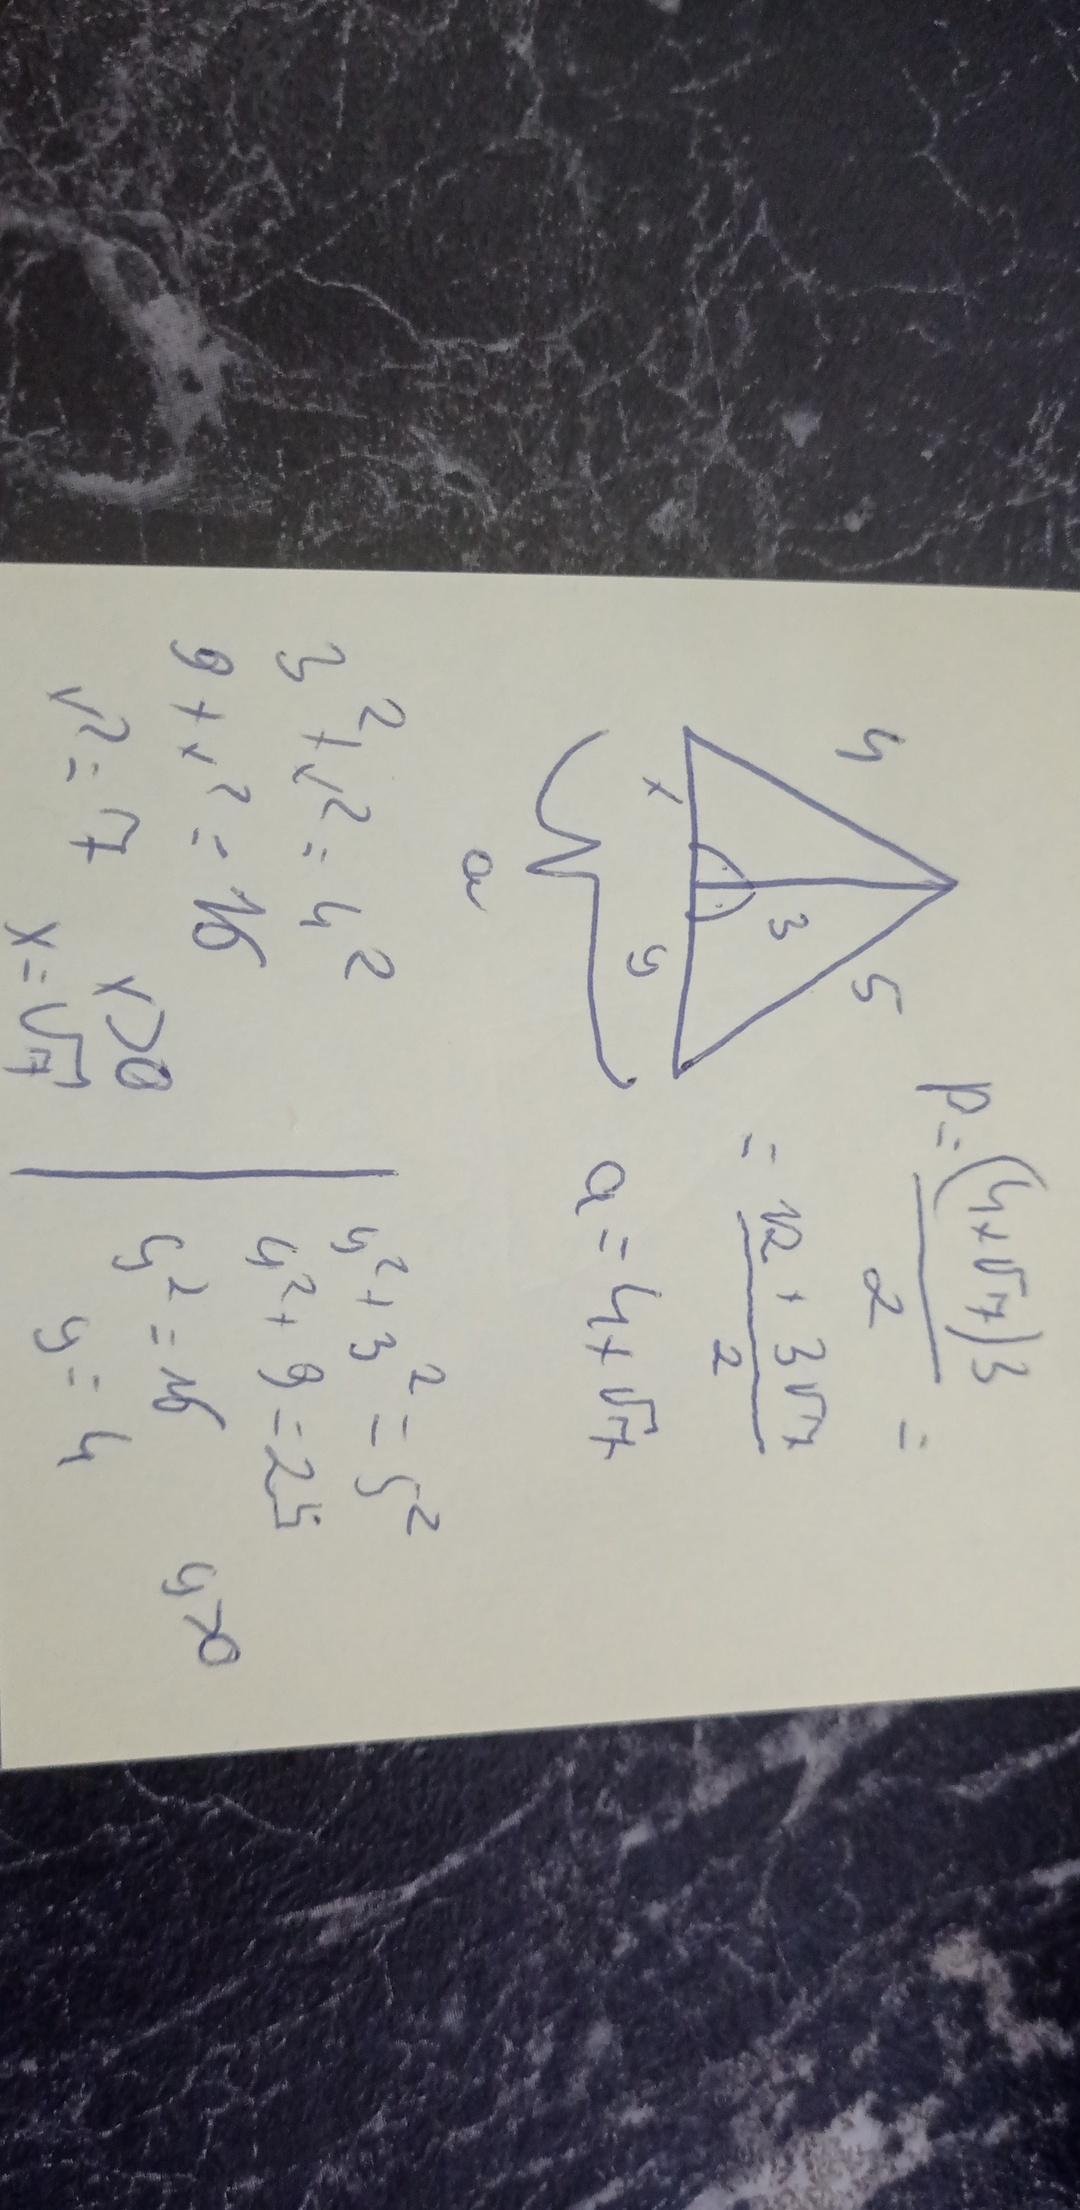 4
5
3
x
y
a
P = (4+√7)3 / 2 =
= 12 + 3√7 / 2
a = 4+√7
3² + x² = 4²
9 + x² = 16
x² = 7
x>0
x = √7
y² + 3² = 5²
y² + 9 = 25
y² = 16
y>0
y = 4